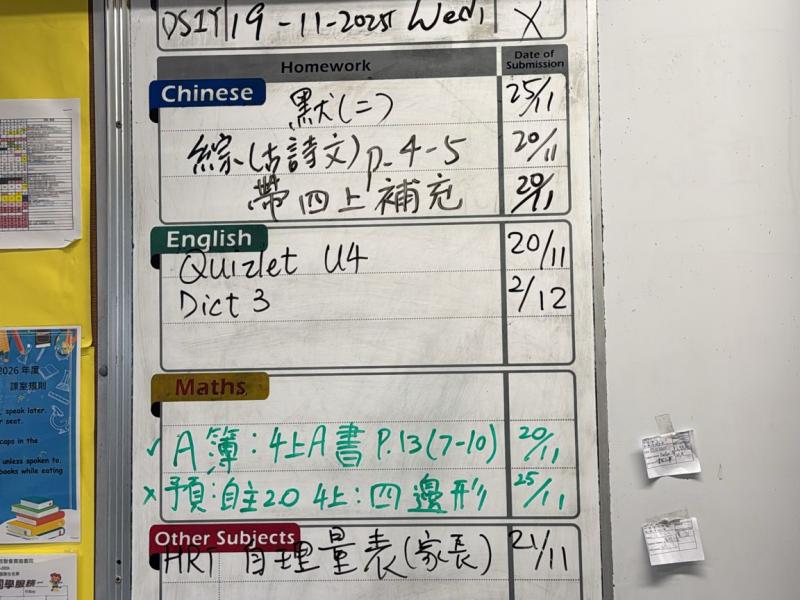 19-11-2025 Wed,
Homework
Date of Submission
Chinese
默(二) 25/11
綜(古詩文)p.4-5 20/11
帶四上補充 20/11
English
Quizlet U4 20/11
Dict 3 2/12
Maths
✓ A簿:4上A書 P.13(7-10) 20/11
x 預:自主20 4上:四邊形 25/11
Other Subjects
HRT 自理量表(家長) 21/11
2026年度
課室規則
speak later.
seat.
caps in the
unless spoken to.
books while eating
同學服務